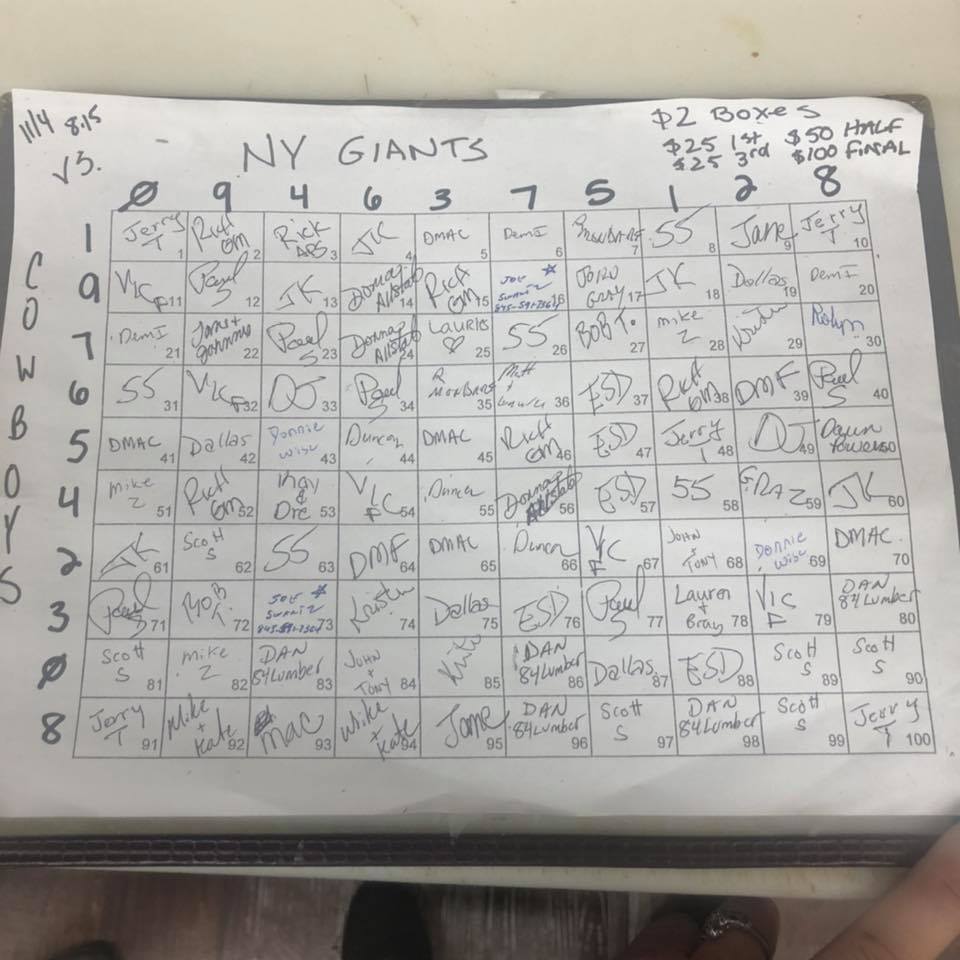 11/4 8:15
$2 Boxes
$25 1st $50 HALF
$25 3rd $100 FINAL
NY GIANTS
COWBOYS
0 9 4 6 3 7 5 1 2 8
1 Jerry T 1 Rich GM 2 Rick ABS 3 JK 4 DMAC 5 Dem I 6 7 55 8 Jane 9 Jerry T 10
9 Vic F 11 Paul S 12 JK 13 Donna Allstate 14 Rich GM 15 Joe 16 Gray 17 JK 18 Dallas 19 Dem I 20
7 Dem I 21 22 Paul S 23 Donna Allstate 24 Lauries ♡ 25 55 26 BOB T. 27 Mike Z 28 Kristen 29 Robyn 30
6 55 31 Vic F 32 DJ 33 Paul S 34 R 35 Matt + 36 ESD 37 Rich GM 38 DMF 39 Paul S 40
5 DMAC 41 Dallas 42 Donnie Wise 43 Duncan 44 DMAC 45 Rich GM 46 ESD 47 Jerry T 48 DJ 49 Dawn Powers 50
4 Mike Z 51 Rich GM 52 Kay & Dre 53 Vic F 54 Duncan 55 Donna Allstate 56 ESD 57 55 58 GRAZ 59 JK 60
2 JK 61 Scott S 62 55 63 DMF 64 DMAC 65 Duncan 66 Vic F 67 John + Tony 68 Donnie Wise 69 DMAC 70
3 Paul S 71 BOB T. 72 Joe 73 Kristen 74 Dallas 75 ESD 76 Paul S 77 Lauren + Gray 78 Vic F 79 DAN 84 Lumber 80
0 Scott S 81 Mike Z 82 DAN 84 Lumber 83 John + Tony 84 Kristen 85 DAN 84 Lumber 86 Dallas 87 ESD 88 Scott S 89 Scott S 90
8 Jerry T 91 Mike + Kate 92 Mac 93 Mike + Kate 94 Jane 95 DAN 84 Lumber 96 Scott S 97 DAN 84 Lumber 98 Scott S 99 Jerry T 100